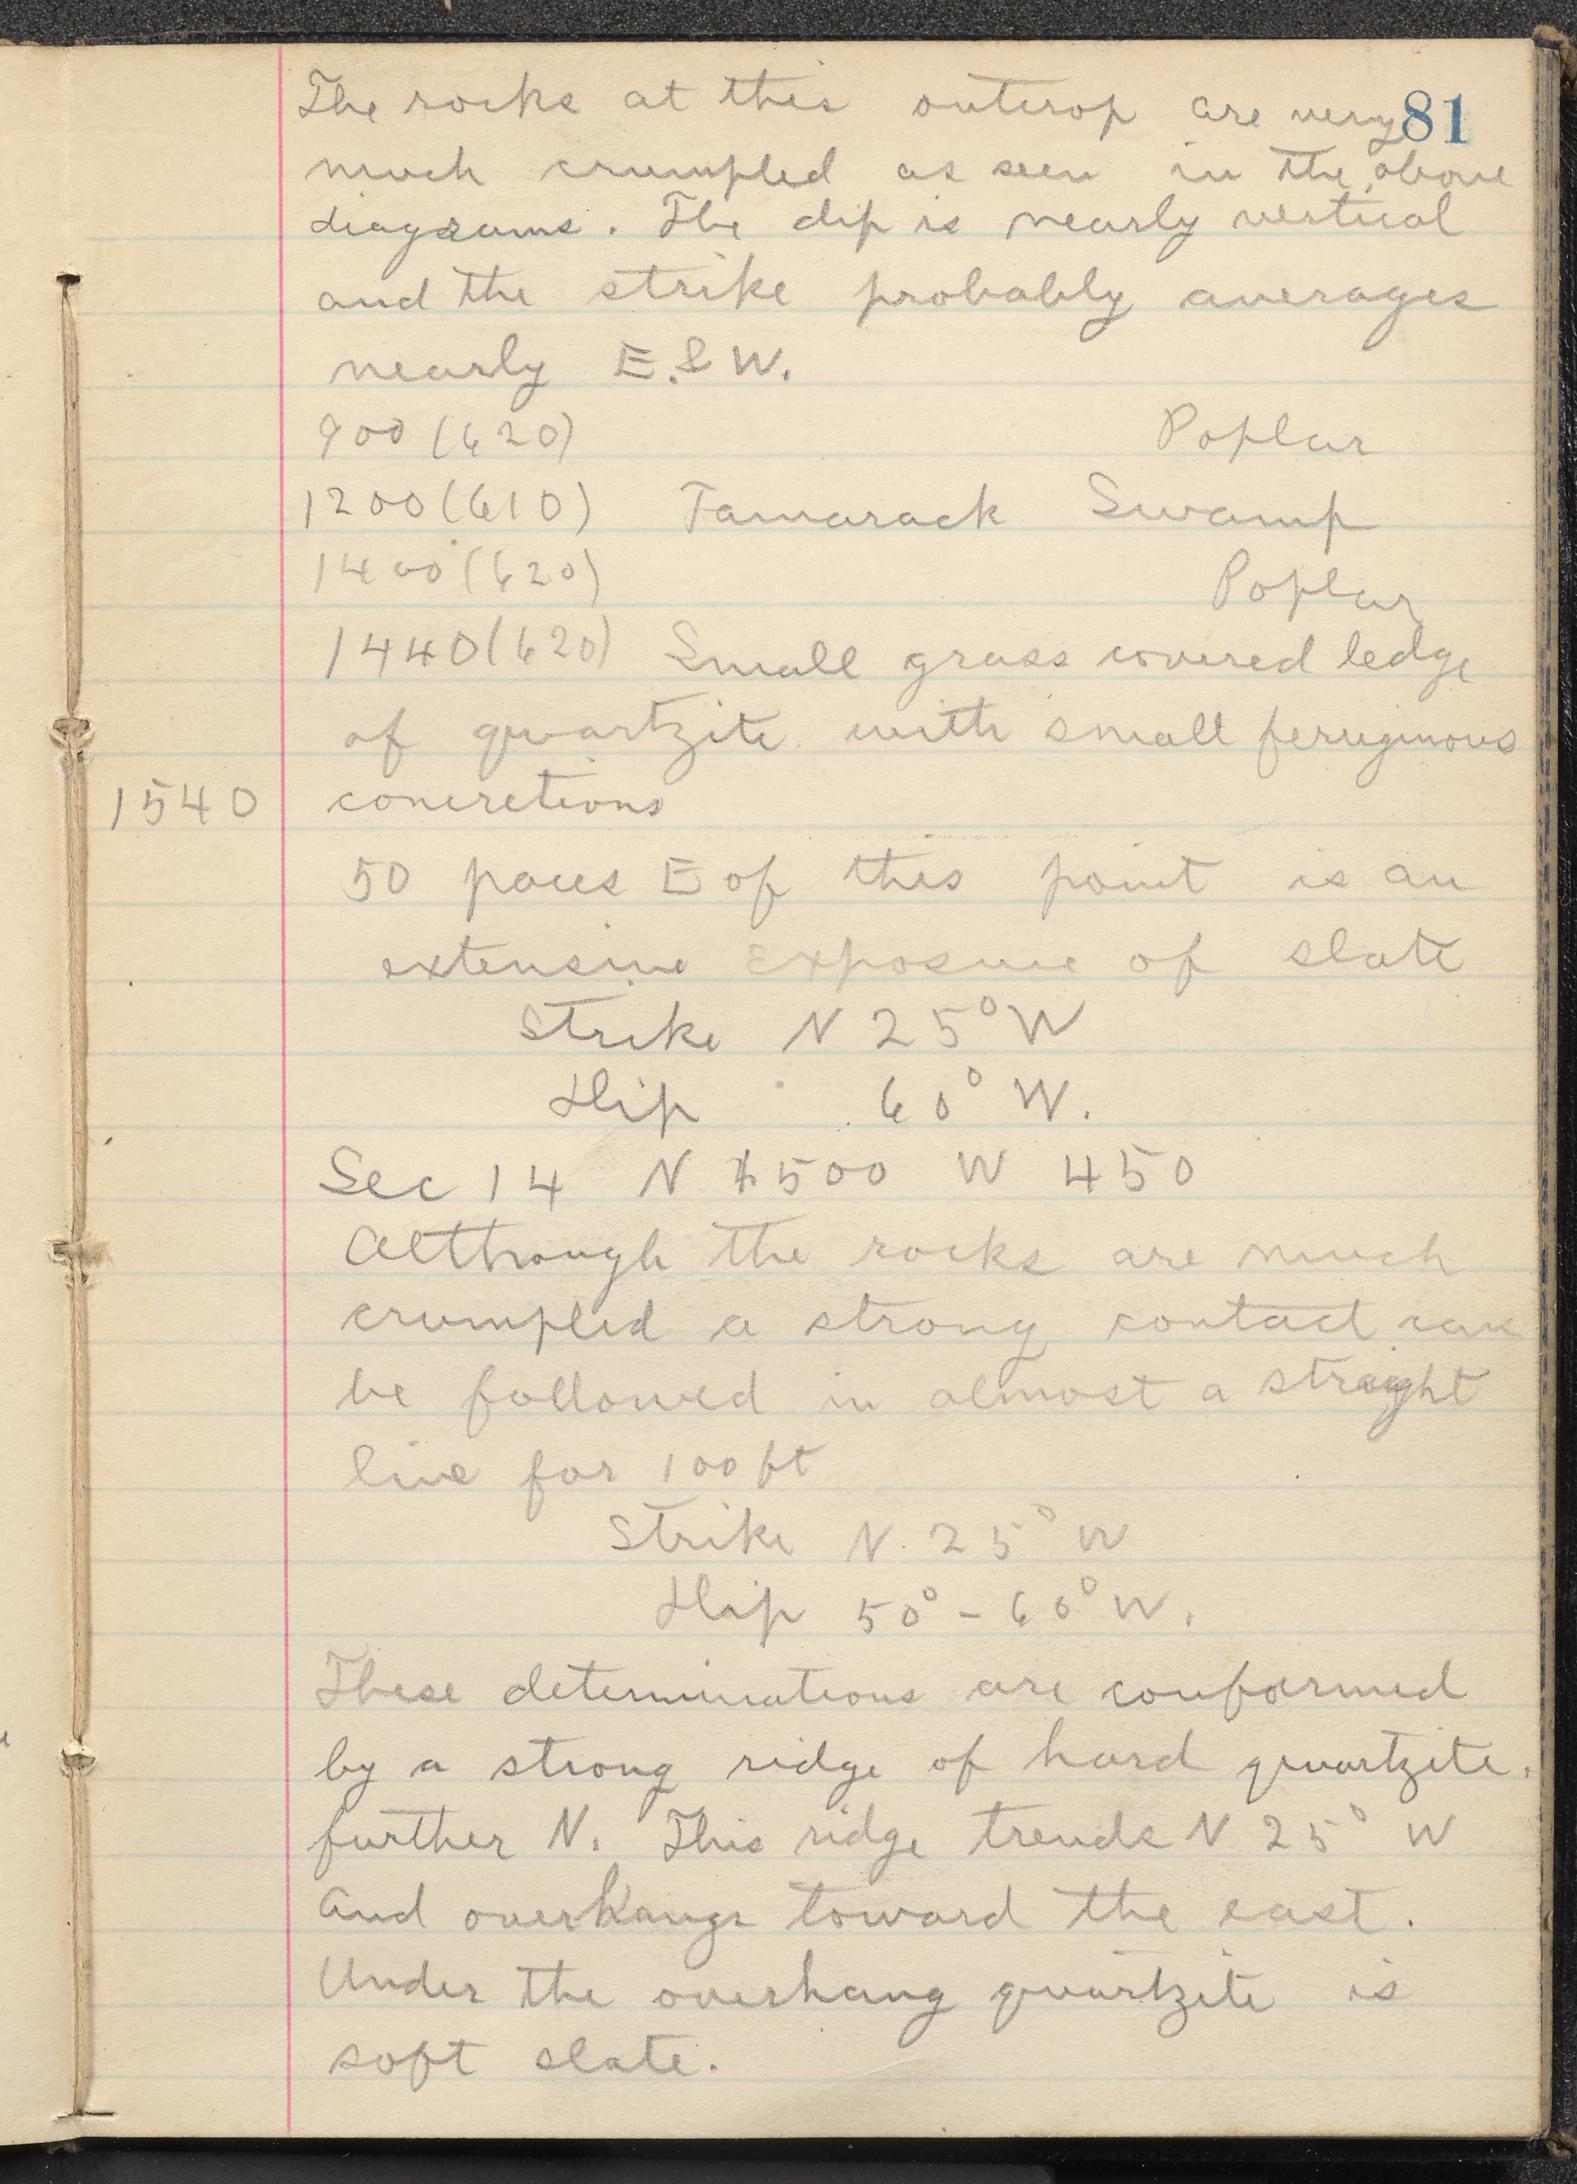 81
The rocks at this outcrop are very
much crumpled as seen in the above
diagrams. The dip is nearly vertical
and the strike probably averages
nearly E. & W.
900 (620) Poplar
1200 (610) Tamarack Swamp
1400 (620) Poplar
1440 (620) Small grass covered ledge
of quartzite with small feruginous
1540 concretions
50 paces E of this point is an
extensive exposure of slate
Strike N 25° W
Dip 60° W.
Sec 14 N 1500 W 450
Although the rocks are much
crumpled a strong contact can
be followed in almost a straight
line for 100 ft
Strike N. 25° W
Dip 50° - 60° W.
These determinations are conformed
by a strong ridge of hard quartzite.
further N. This ridge trends N 25° W
and overhangs toward the east.
Under the overhang quartzite is
soft slate.